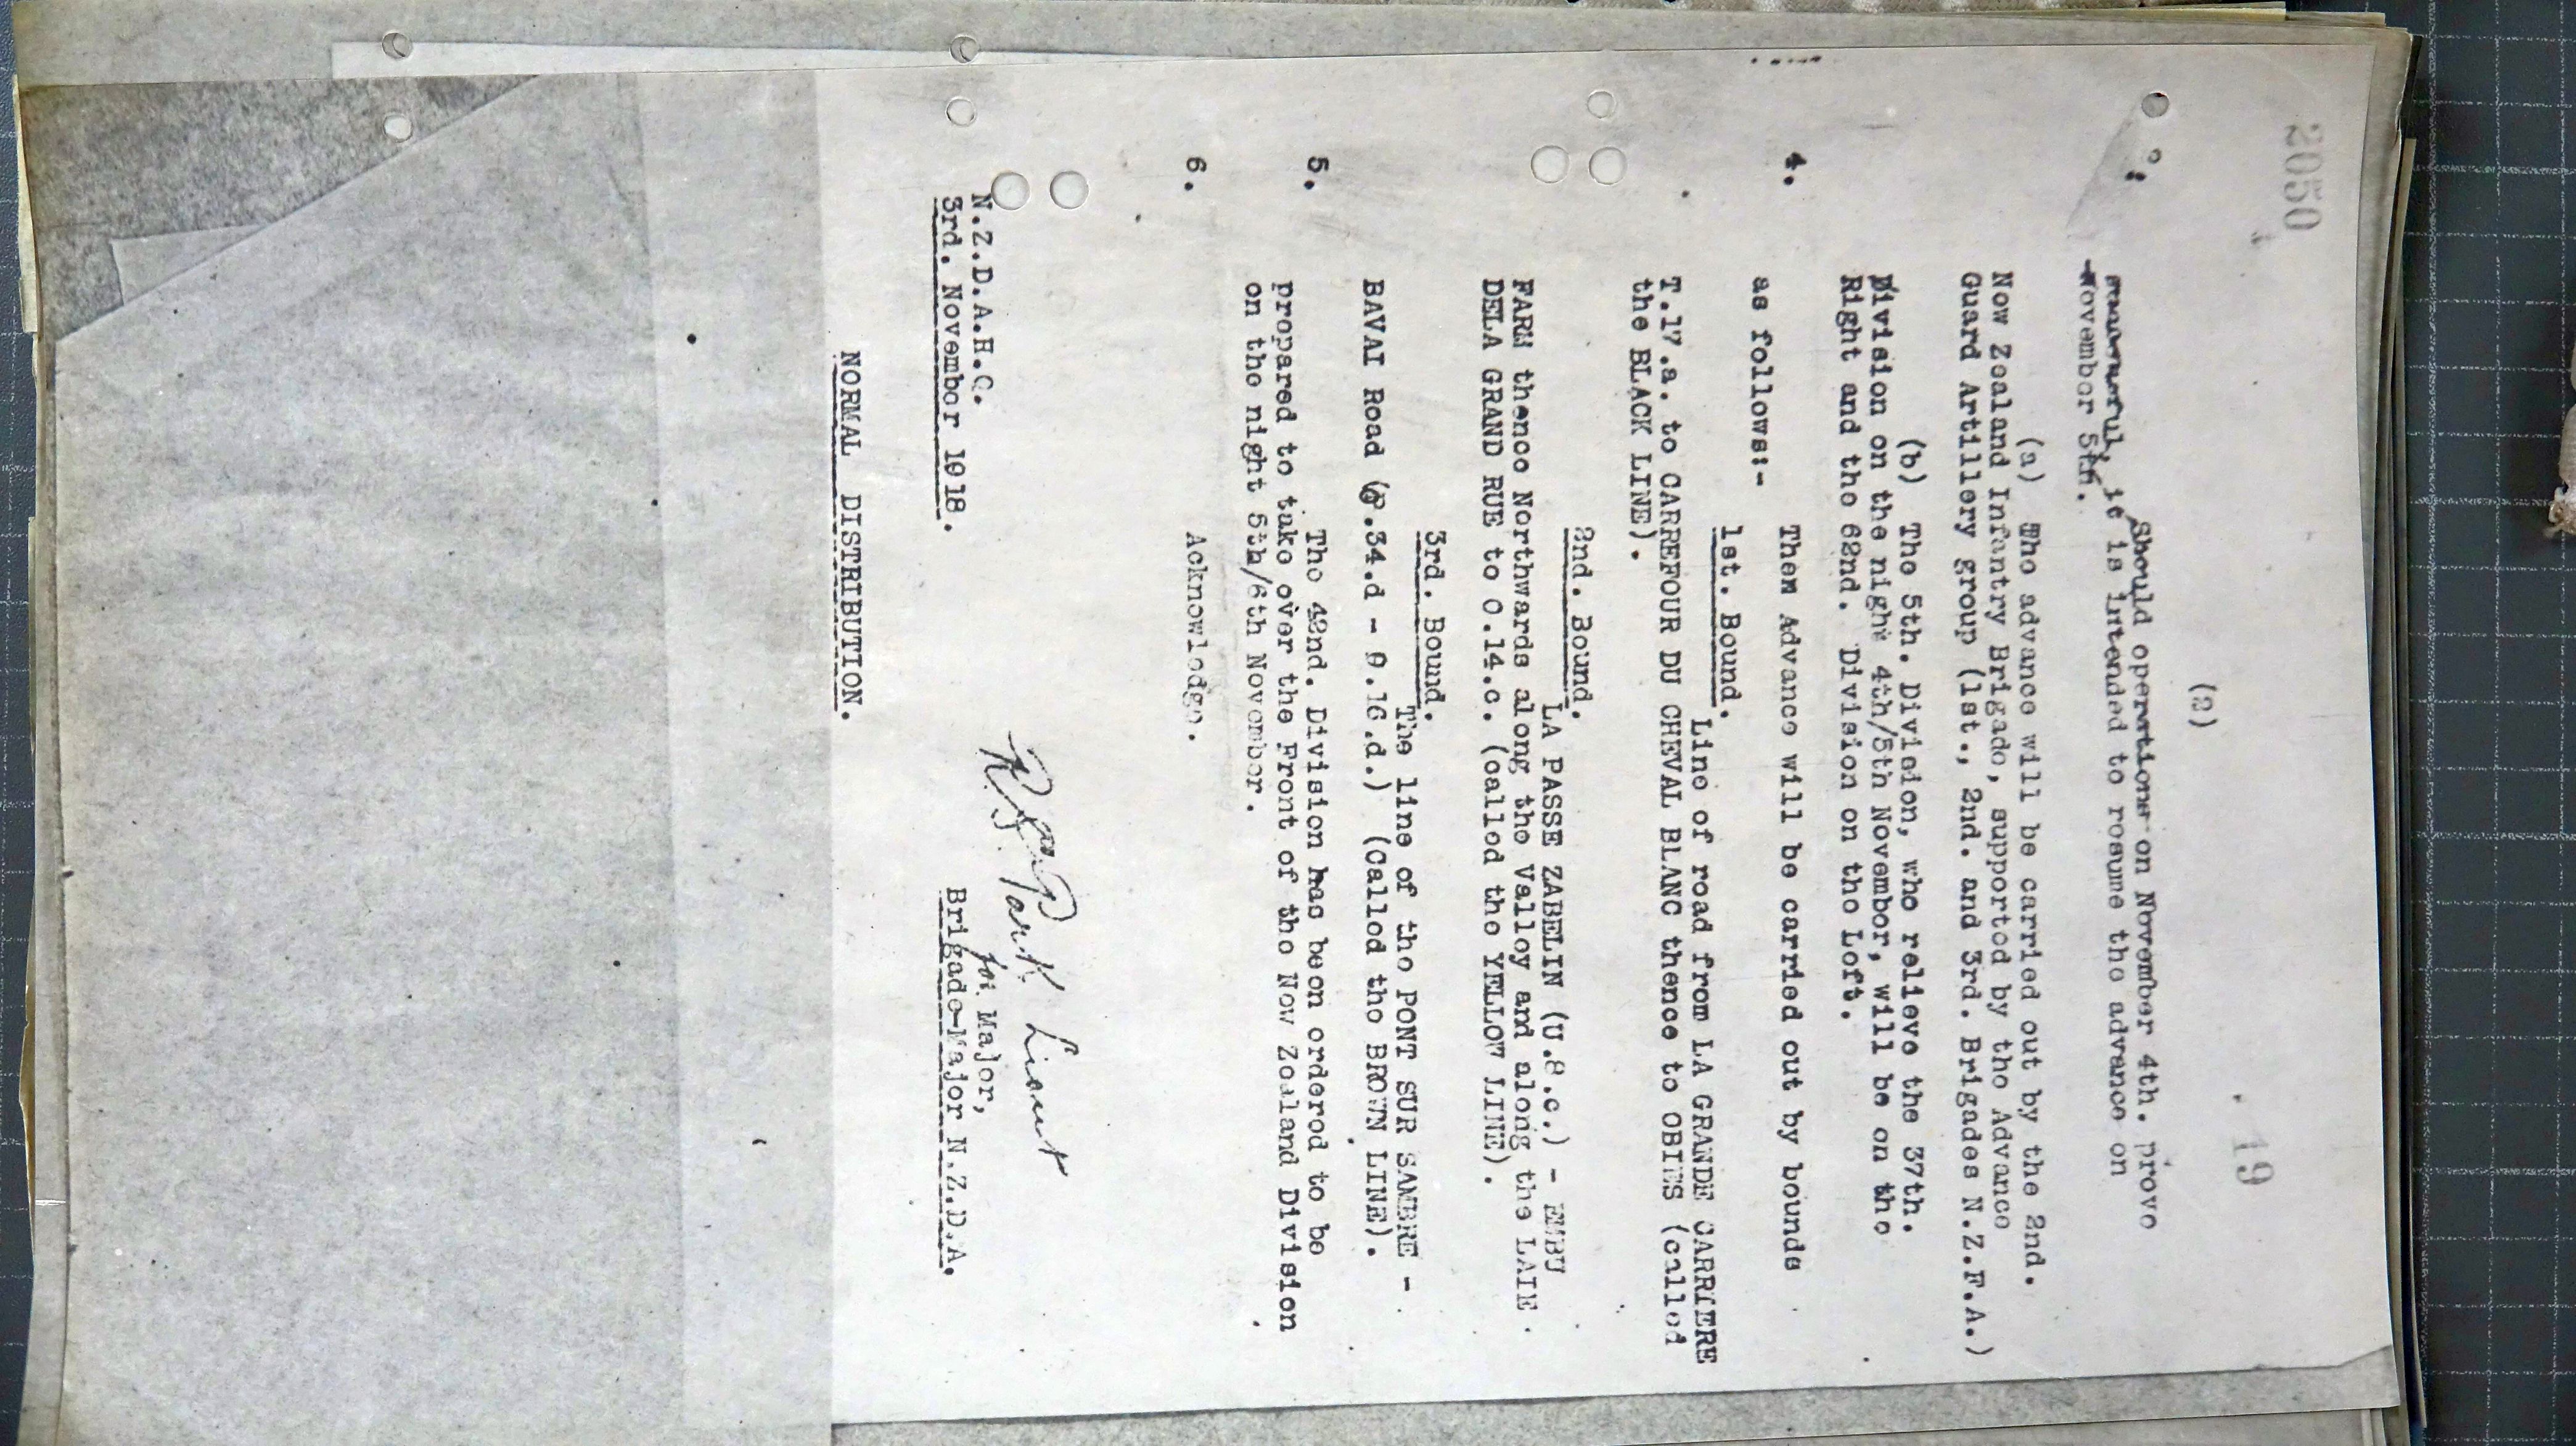 2050
19
(2)
3. Should operations on November 4th. prove
successful, it is intended to resume the advance on
November 5th.
(a) The advance will be carried out by the 2nd.
New Zealand Infantry Brigade, supported by the Advance
Guard Artillery group (1st., 2nd. and 3rd. Brigades N.Z.F.A.)
(b) The 5th. Division, who relieve the 37th.
Division on the night 4th/5th November, will be on the
Right and the 62nd. Division on the Left.
4. Them Advance will be carried out by bounds
as follows:-
1st. Bound.
Line of road from LA GRANDE CARRIERE
T.17.a. to CARREFOUR DU CHEVAL BLANC thence to OBIES (called
the BLACK LINE).
2nd. Bound.
LA PASSE ZABELIN (U.8.c.) - EMBU
FARM thence Northwards along the Valley and along the LAIE
DELA GRAND RUE to O.14.c. (called the YELLOW LINE).
3rd. Bound.
The line of the PONT SUR SAMBRE -
BAVAI Road (P.34.d - 9.16.d.) (called the BROWN LINE).
5. The 42nd. Division has been ordered to be
prepared to take over the Front of the New Zealand Division
on the night 5th/6th November.
6. Acknowledge.
R S Park Lieut
for Major,
N.Z.D.A.H.Q.
3rd. November 1918.
Brigade-Major N.Z.D.A.
NORMAL DISTRIBUTION.